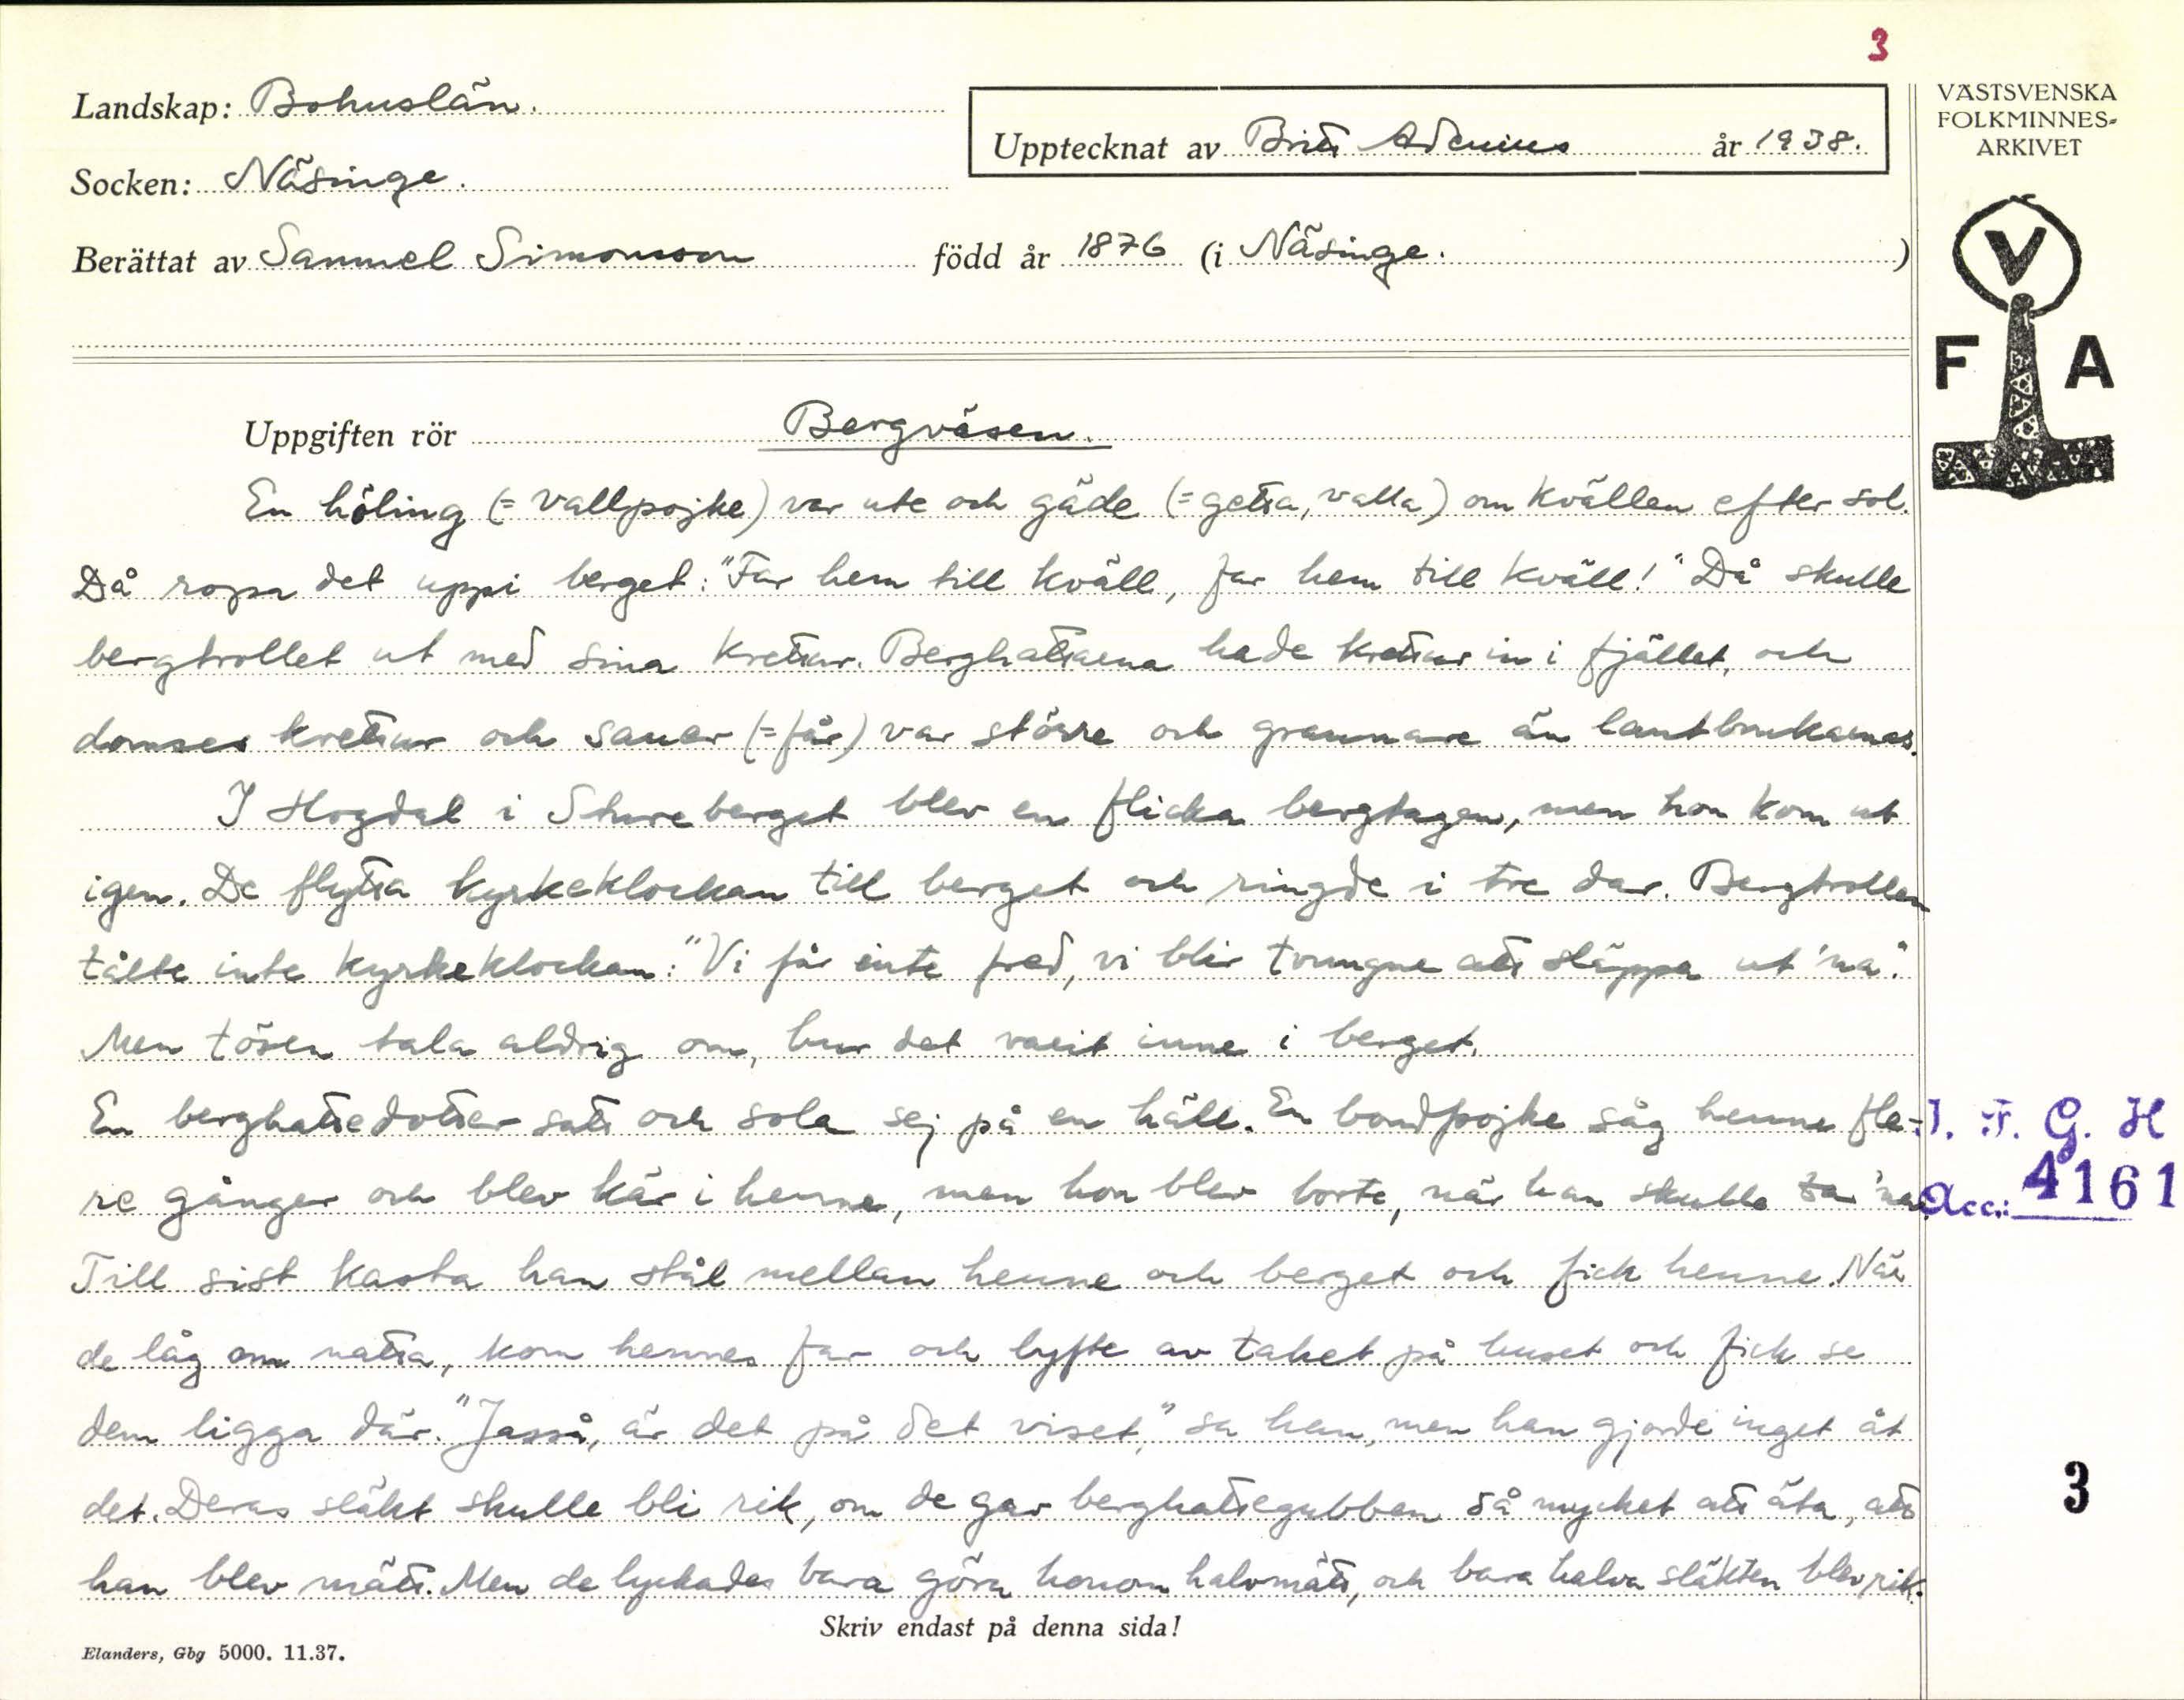 3
Landskap: Bohuslän.
Upptecknat av Britt Adenius år 1938.
VÄSTSVENSKA
FOLKMINNES-
ARKIVET
Socken: Näsinge.
Berättat av Samuel Simonsson född år 1876 (i Näsinge.)
V
F A
Uppgiften rör Bergväsen.
En höling (= vallpojke) var ute och gäde (= getta, valla) om kvällen efter sol.
Då ropa det uppi berget: "Far hem till kväll, far hem till kväll!" Då skulle
bergtrollet ut med sina krettur. Berghattarna hade krettur in i fjället, och
domses krettur och sauer (= får) var större och grannare än lantbrukarnas.
I Hogdal i Stureberget blev en flicka bergtagen, men hon kom ut
igen. De flytta kyrkeklockan till berget och ringde i tre dar. Bergtrollen
tålte inte kyrkeklockan: "Vi får inte fred, vi blir tvungne att släppa ut 'na."
Men tösen tala aldrig om, hur det varit inne i berget.
En berghattedotter satt och sola sej på en häll. En bondpojke såg henne fle-
re gånger och blev kär i henne, men hon blev borte, när han skulle ta 'na.
Till sist kasta han stål mellan henne och berget och fick henne. När
de låg om natta, kom hennes far och lyfte av taket på huset och fick se
dem ligga där. "Jasså, är det på det viset," sa han, men han gjorde inget åt
det. Deras släkt skulle bli rik, om de gav berghattegubben så mycket att äta, att
han blev mätt. Men de lyckades bara göra honom halvmätt, och bara halva släkten blev rik.
I. F. G. H
Acc.: 4161
3
Skriv endast på denna sida!
Elanders, Gbg 5000. 11.37.